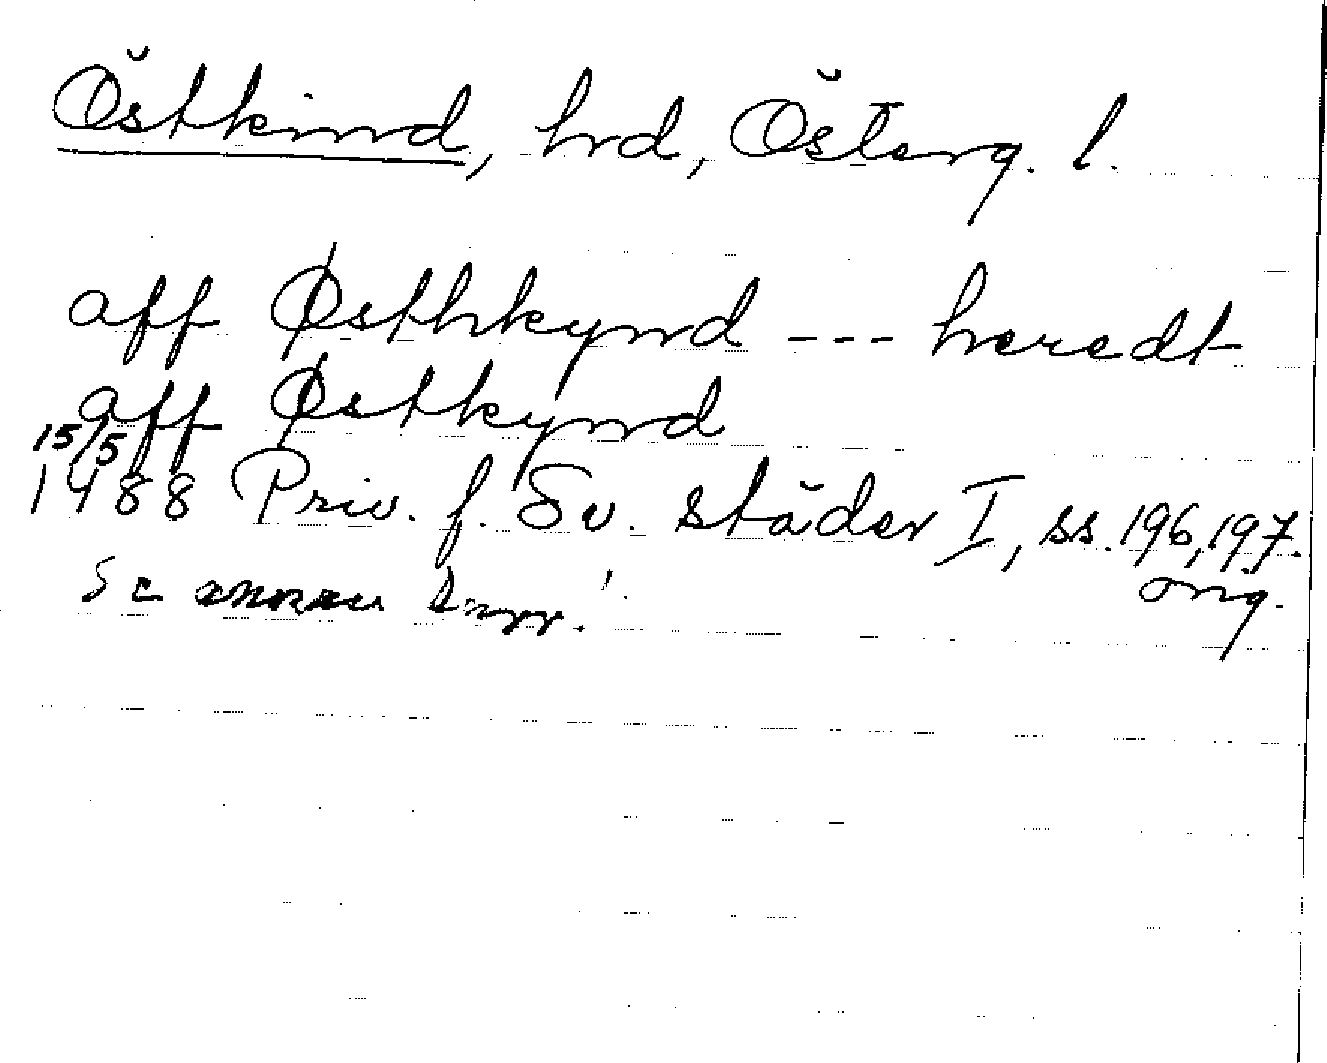 Östkind, hrd, Österg. l.
aff Østhkynd --- heredt
aff Østkynd
15/5
1488 Priv. f. Sv. städer I, ss. 196, 197.
orig.
Se annan